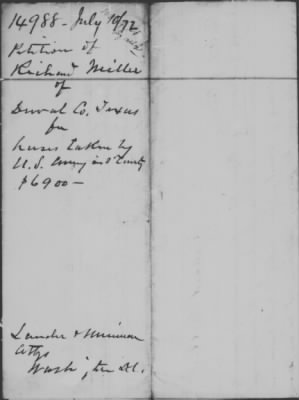 14988 - July 10/72
Petition of
Richard Miller
of
Duval Co. Texas
for
horses taken by
U.S. Army in County
$6900 —
Lander &
Attys
Washington D.C.